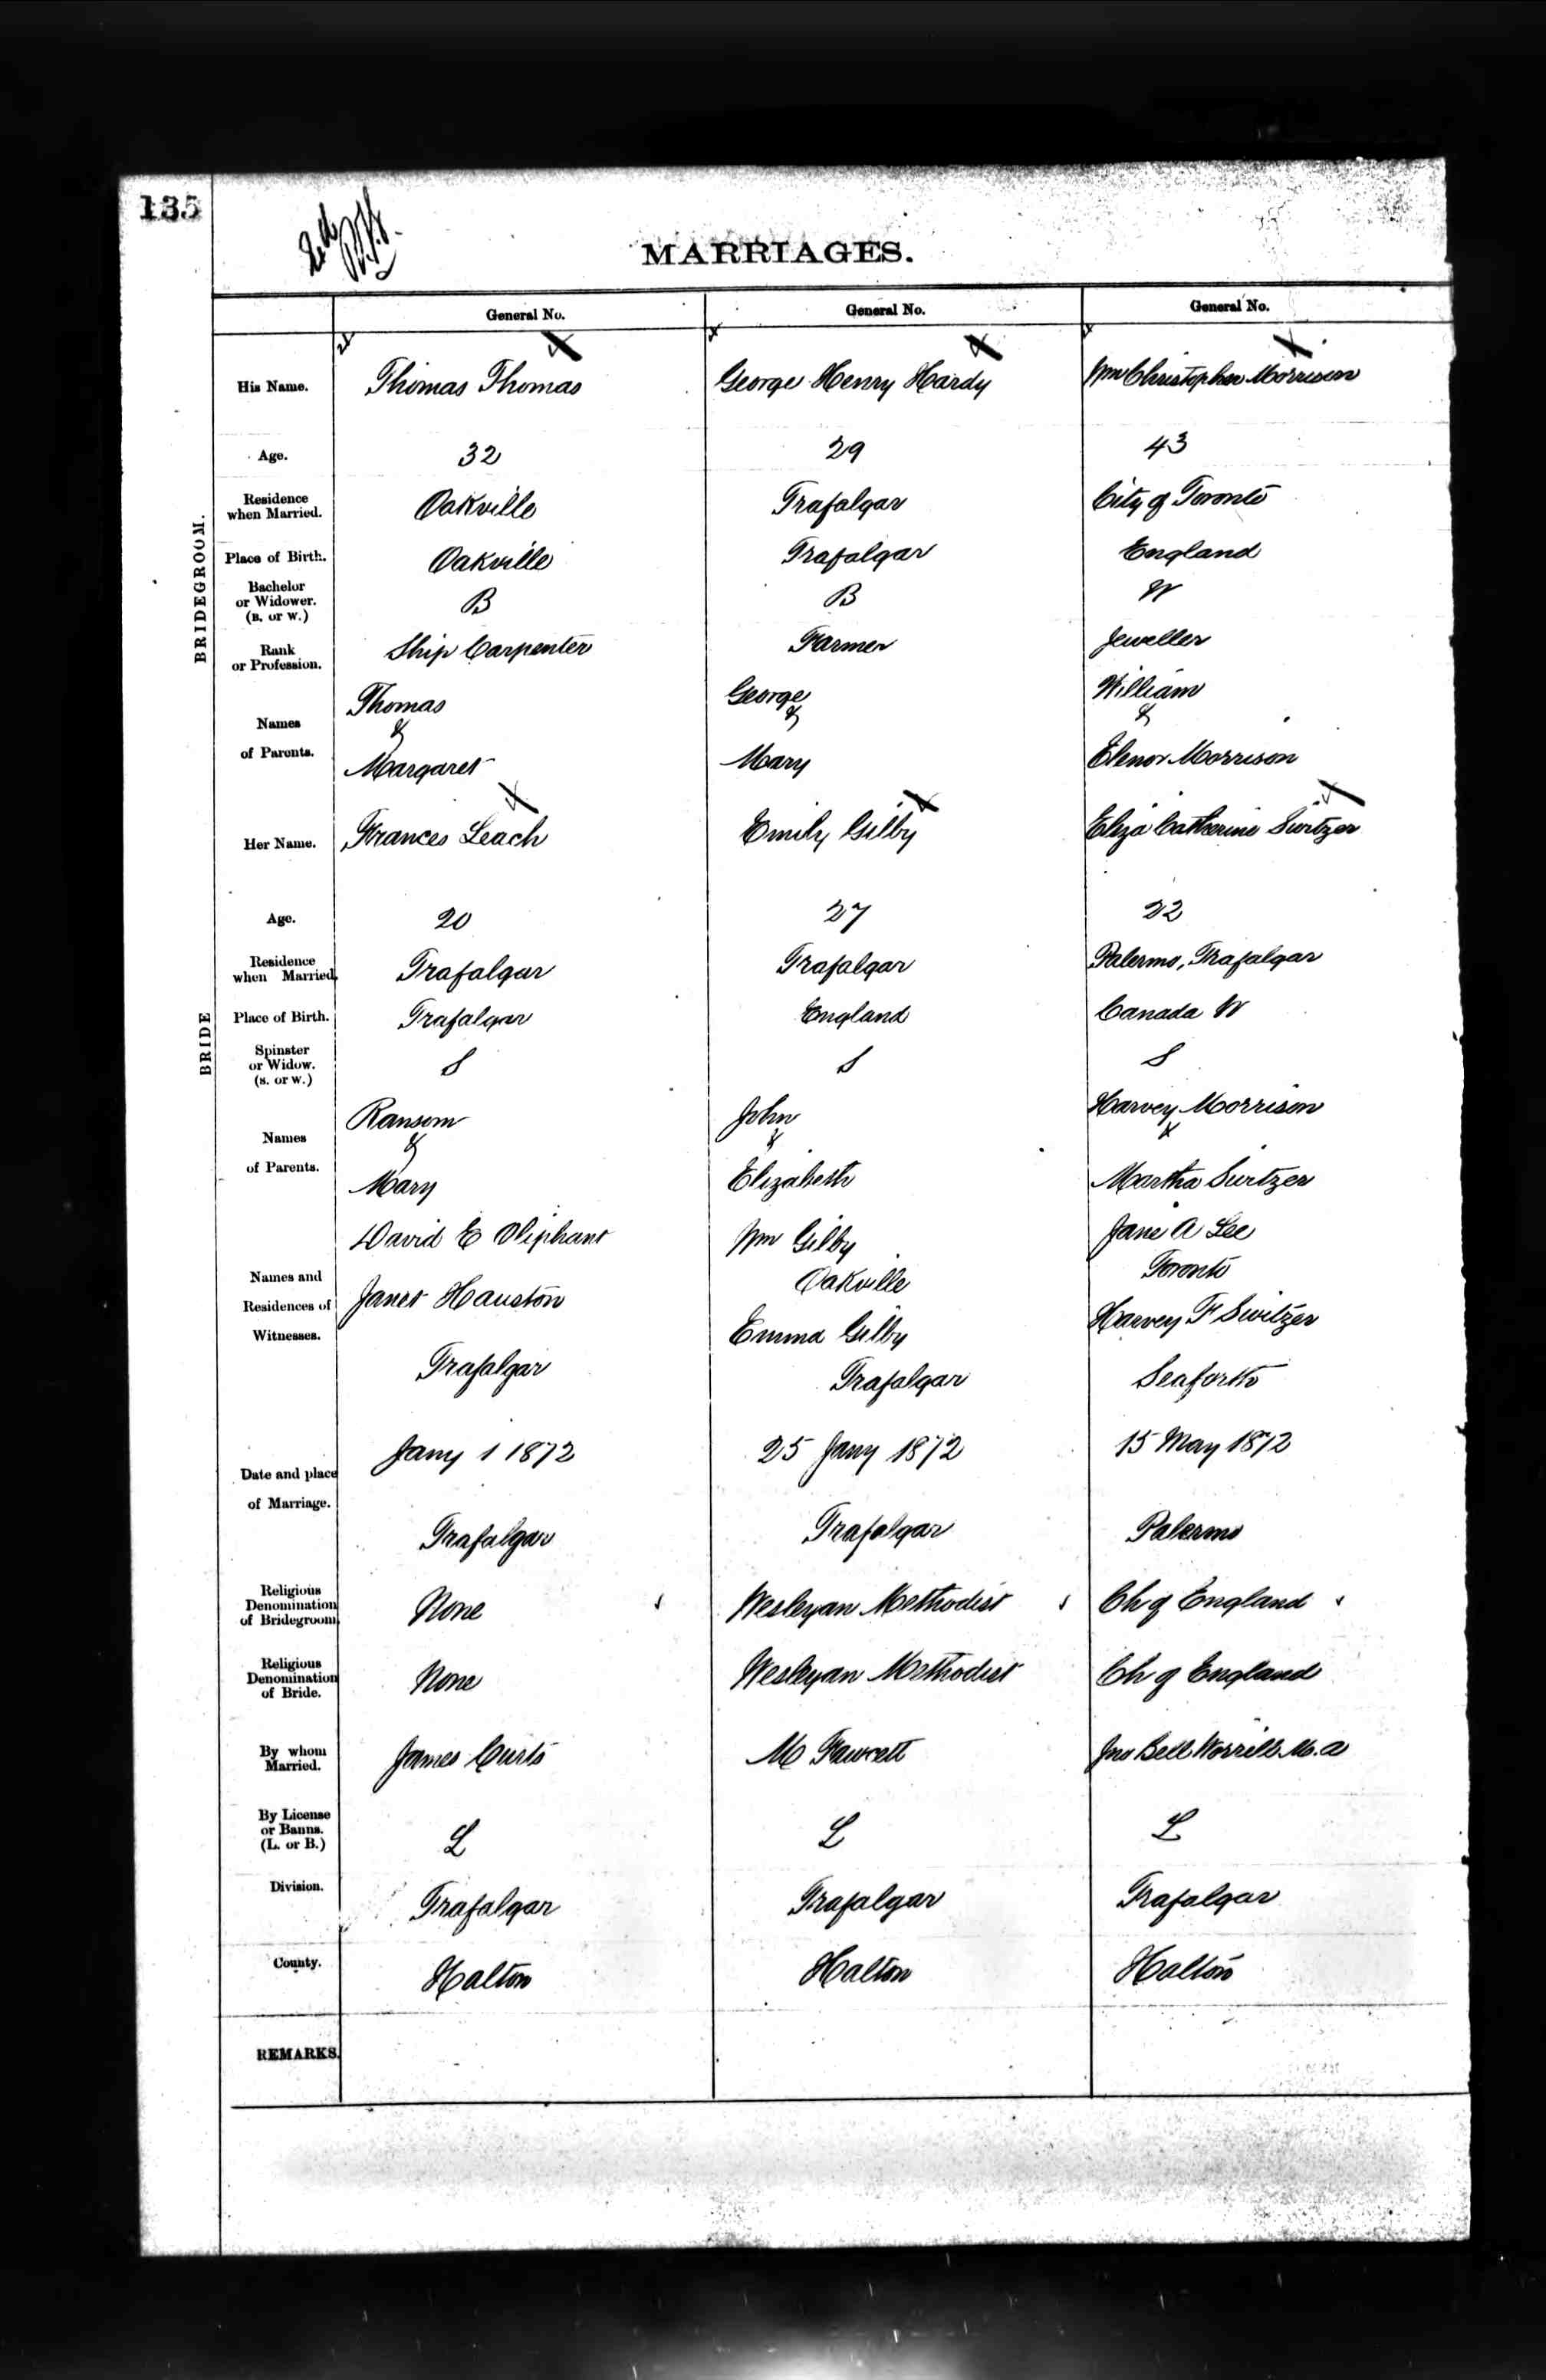 135
MARRIAGES.
General No. General No. General No.
BRIDEGROOM.
His Name. Thomas Thomas George Henry Hardy Wm Christopher Morrison
Age. 32 29 43
Residence when Married. Oakville Trafalgar City of Toronto
Place of Birth. Oakville Trafalgar England
Bachelor or Widower. (B. or W.) B B W
Rank or Profession. Ship Carpenter Farmer Jeweller
Names of Parents. Thomas & Margaret George & Mary William & Elenor Morrison
BRIDE
Her Name. Frances Leach Emily Gilby Eliza Catherine Switzer
Age. 20 27 22
Residence when Married. Trafalgar Trafalgar Palermo, Trafalgar
Place of Birth. Trafalgar England Canada W
Spinster or Widow. (S. or W.) S S S
Names of Parents. Ransom & Mary John & Elizabeth Harvey Morrison & Martha Switzer
Names and Residences of Witnesses. David E Oliphant Janet Hauston Trafalgar Wm Gilby Oakville Emma Gilby Trafalgar Jane A Lee Toronto Harvey F Switzer Seaforth
Date and place of Marriage. Jany 1 1872 Trafalgar 25 Jany 1872 Trafalgar 15 May 1872 Palermo
Religious Denomination of Bridegroom. None Wesleyan Methodist Ch of England
Religious Denomination of Bride. None Wesleyan Methodist Ch of England
By whom Married. James Curts M Fawcett Jno Bell Worrell M.A
By License or Banns. (L. or B.) L L L
Division. Trafalgar Trafalgar Trafalgar
County. Halton Halton Halton
REMARKS.